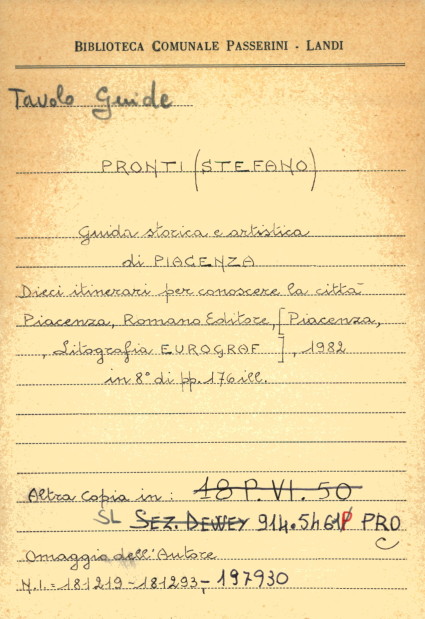 BIBLIOTECA COMUNALE PASSERINI - LANDI
Tavolo Guide
PRONTI (STEFANO)
Guida storica e artistica
di PIACENZA
Dieci itinerari per conoscere la città
Piacenza, Romano Editore, [Piacenza,
, Litografia EUROGRAF ], 1982
in 8° di pp. 176 ill.
Altra copia in : 18 P. VI. 50
SL SEZ. DEWEY 914.5461P PRO
C
Omaggio dell'Autore
N.I. = 181219 - 181293, - 197930